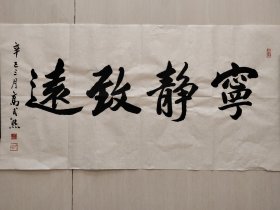 寧靜致遠
辛巳三月高式熊